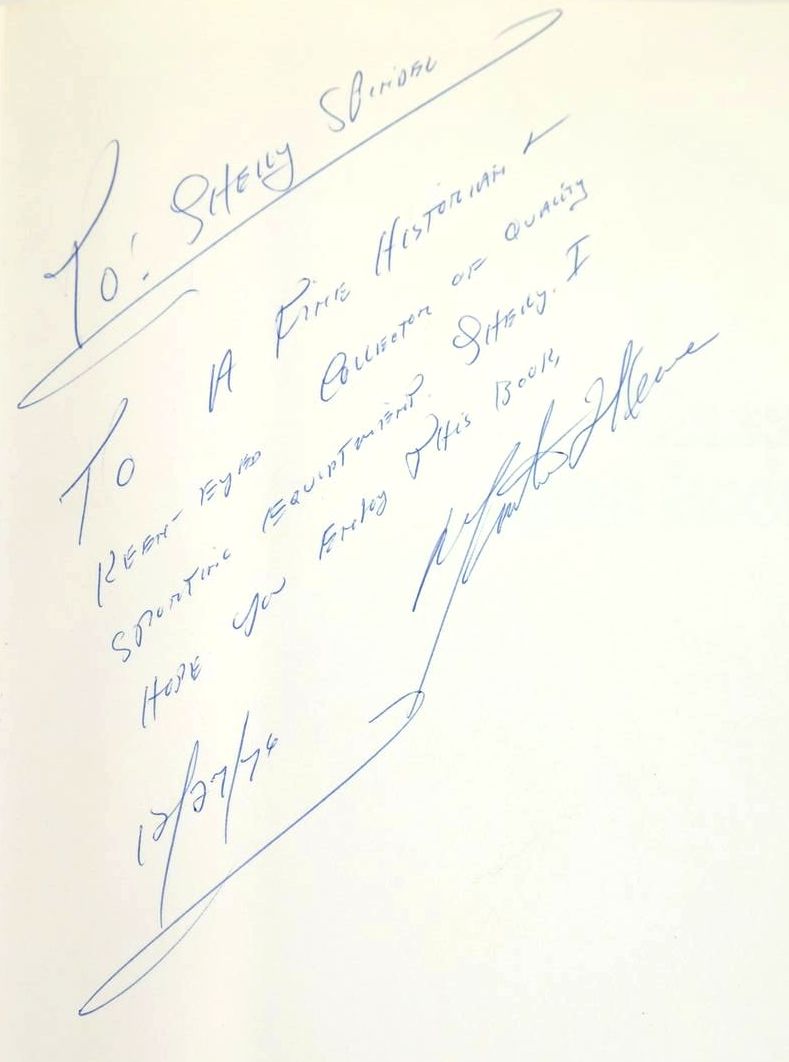 To: Shelly Spindel
To A Fine Historian &
Keen-Eyed Collector of Quality
Sporting Equiptment. Shelly. I
Hope You Enjoy This Book,
12/27/76